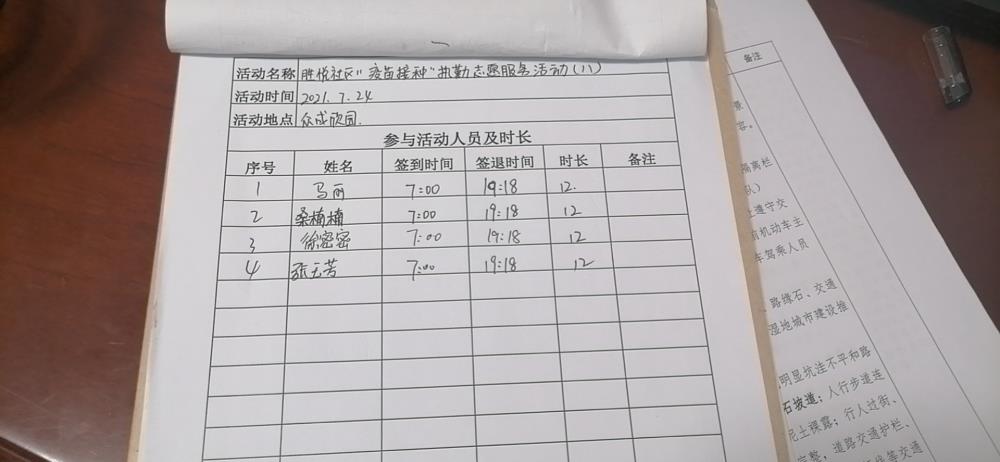 活动名称 胜悦社区"疫苗接种"执勤志愿服务活动(八)
活动时间 2021.7.24
活动地点 众成欣园.
参与活动人员及时长
序号 姓名 签到时间 签退时间 时长 备注
1 马丽 7:00 19:18 12.
2 桑楠楠 7:00 19:18 12
3 徐密密 7:00 19:18 12
4 张云芳 7:00 19:18 12
备注
隔离栏
队)
上遵守交
有机动车主
车驾乘人员
路缘石、交通
湿地城市建设推
明显坑洼不平和路
石坡道；人行步道连
尼土裸露；行人过街、
完整，道路交通护栏、